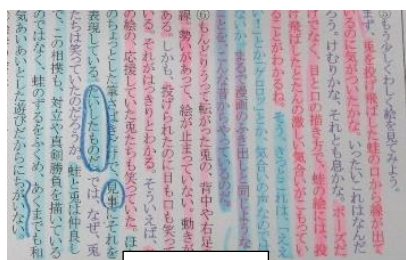 ⑤もう少しくわしく絵を見てみよう。
まず、兎を投げ飛ばした蛙の口から線が出て
いるのに気がついたかな。いったいこれはなんだ
ろう。けむりかな、それとも息かな。ポーズだ
けでなく、目と口の描き方で、蛙の絵には、投
げ飛ばしたとたんの激しい気合いがこもってい
ることがわかるね。そう、きっとこれは、「ええ
い!」とか、「ゲロロッ」とか、気合いの声なのではな
いか。まるで漫画のふき出しと同じようなこ
とを、こんな昔からやっているのだ。
⑥もんどりうって転がった兎の、背中や右足の
線。勢いがあって、絵が止まっていない。動きが
ある。しかも、投げられたのに目も口も笑って
いる。それがはっきりとわかる。そういえば、
の絵の、応援していた兎たちも笑っていた。ほん
のちょっとした筆さばきだけで、見事にそれを
表現している。たいしたものだ。では、なぜ、兎
たちは笑っていたのだろうか。蛙と兎は仲良し
で、この相撲も、対立や真剣勝負を描いている
のではなく、蛙のずるをふくめ、あくまでも和
気あいあいとした遊びだからにちがいない。